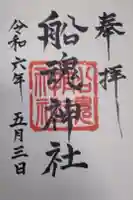 奉拝
船魂神社
令和六年五月三日